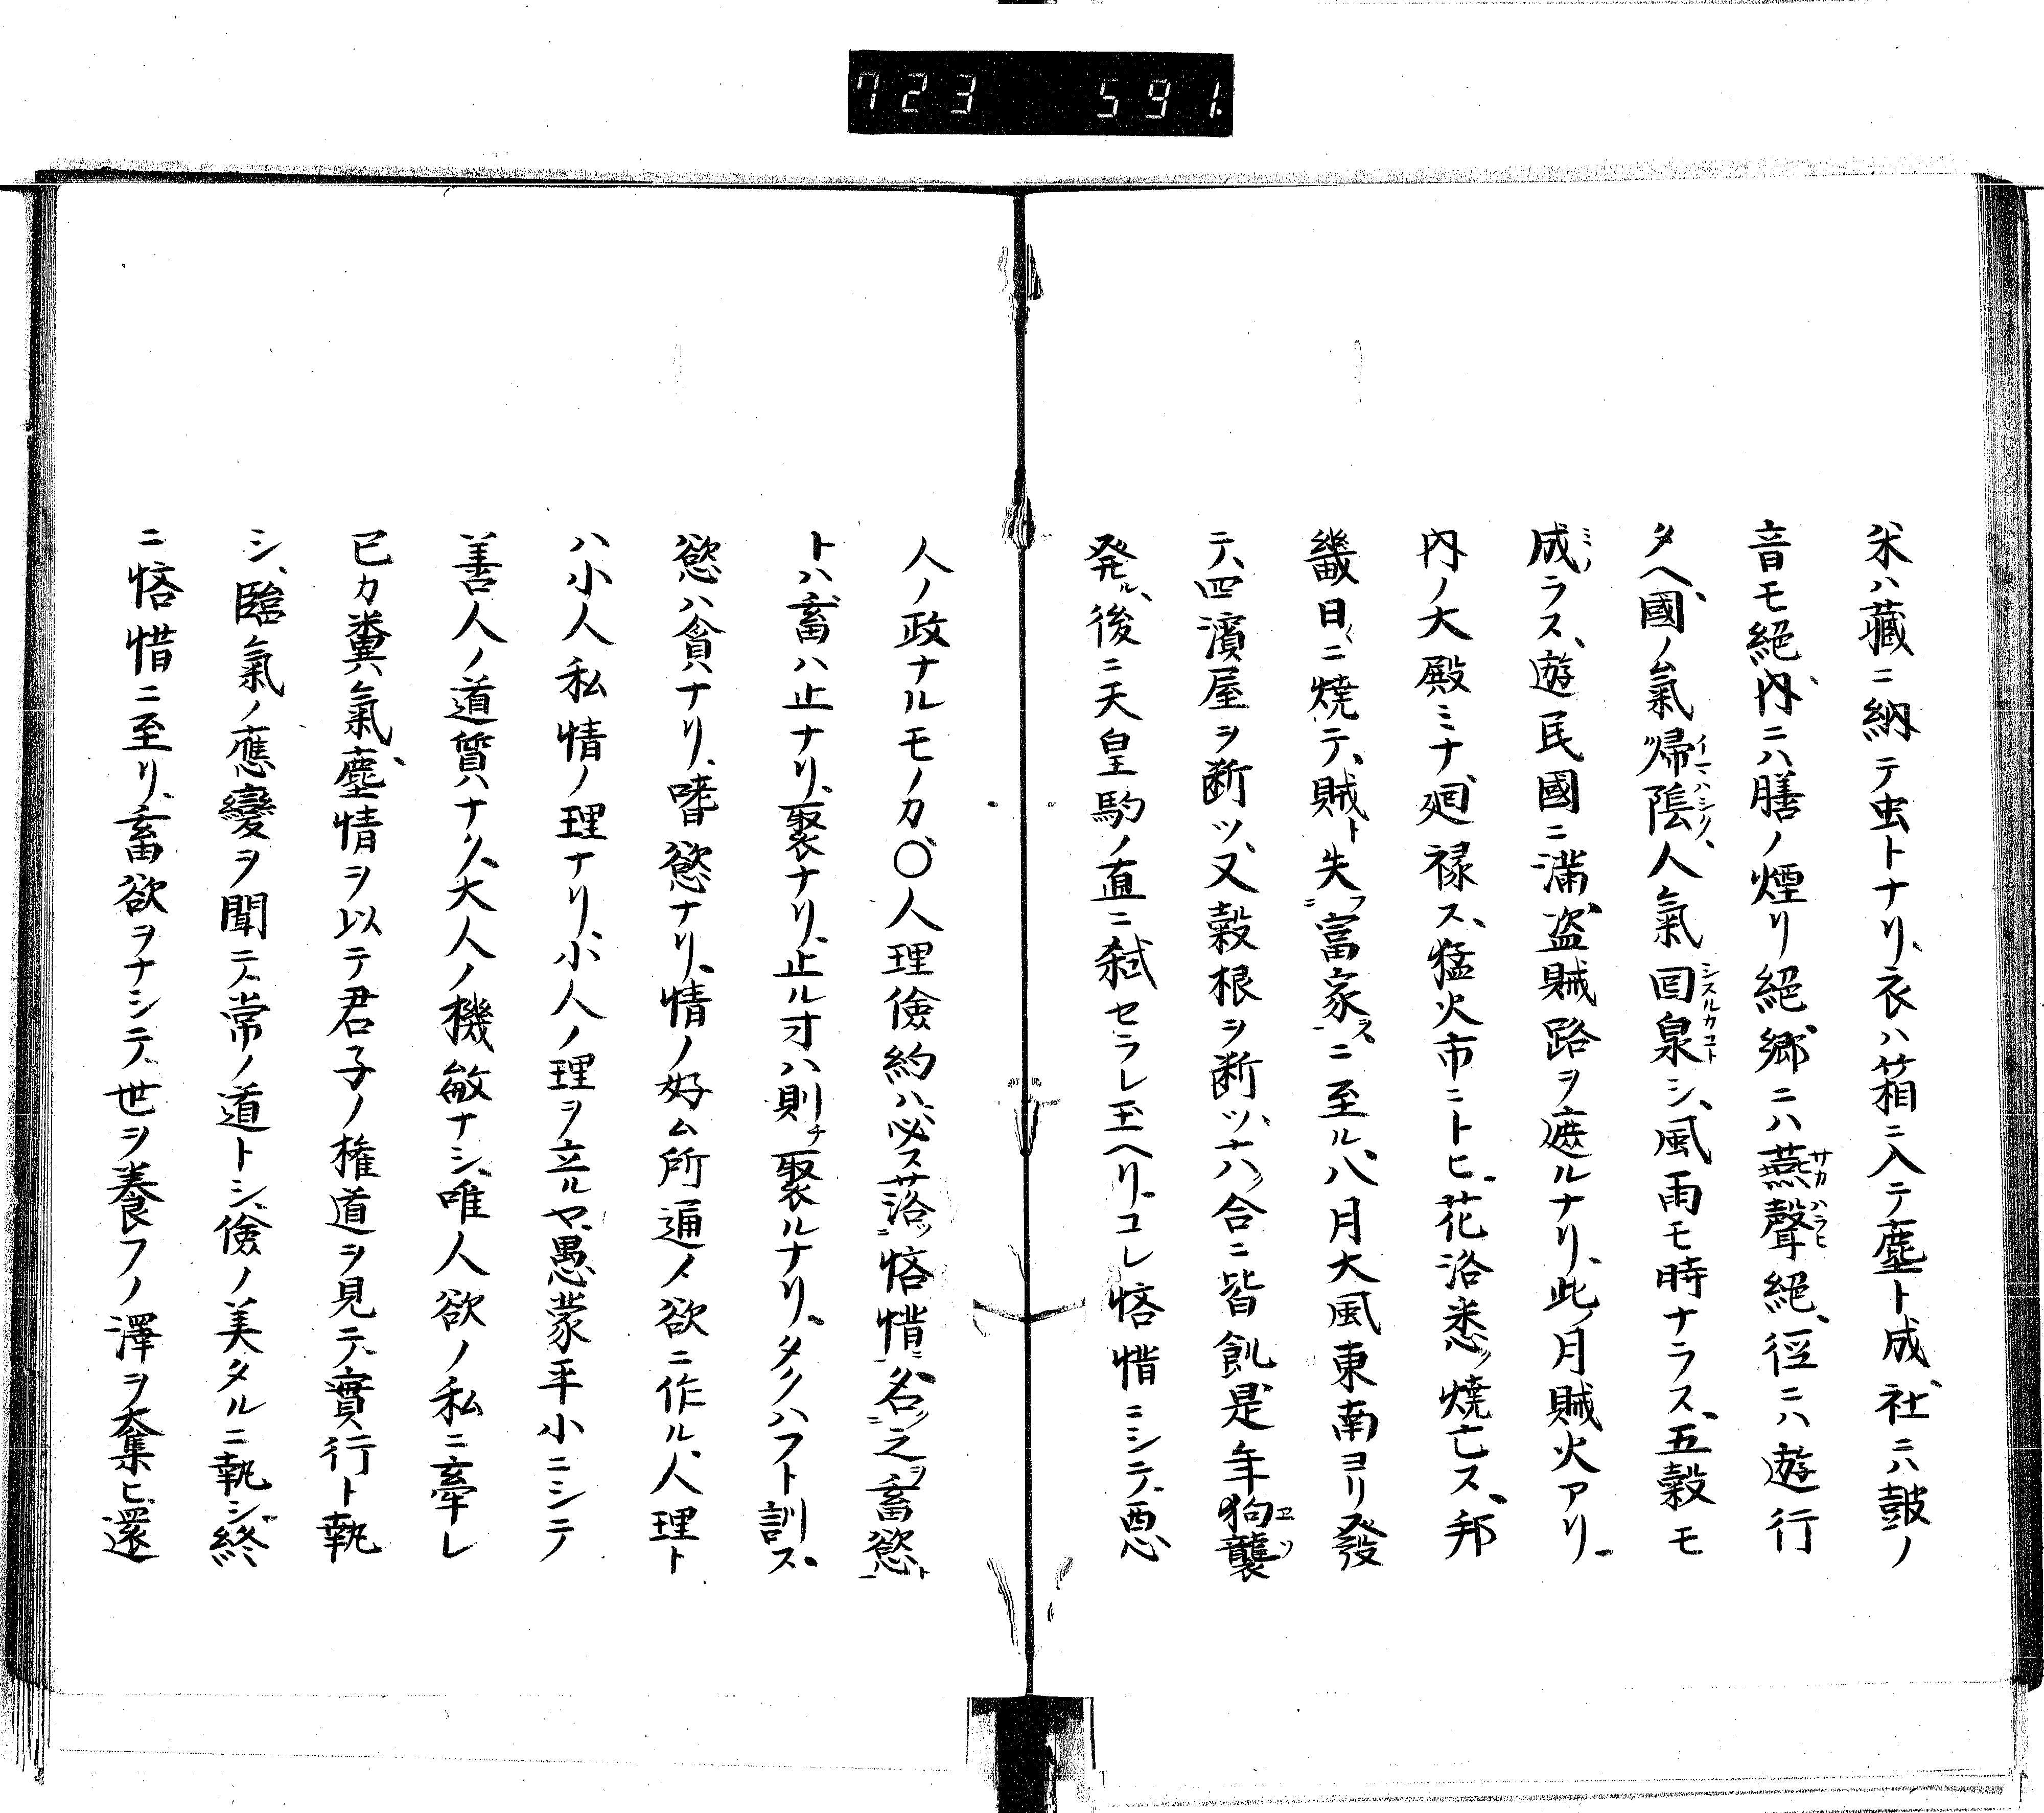 723 591.
米ハ藏ニ納テ虫トナリ、衣ハ箱ニ入テ塵ト成、社ニハ鼓ノ
音モ絕、內ニハ膳ノ煙リ絕、鄉ニハ燕聲絕、徑ニハ遊行
タヘ、國ノ氣帰隂人氣囙泉シ、風雨モ時ナラス、五穀モ
成ラス、遊民國ニ滿、盗賊路ヲ遮ルナリ、此ノ月賊火アリ、
內ノ大殿ミナ廻禄ス、猛火市ニトヒ、花洛悉ク燒亡ス、邦
畿日〻ニ焼テ、賊ト失フ富家ニ至ル、八月大風東南ヨリ發
テ、四濱屋ヲ断ツ、又穀根ヲ断ツ、十ハ合ニ皆飢、是年狗襲
発ル、後ニ天皇駒ノ直ニ弑セラレ玉ヘリ、コレ悋惜ニシテ、惡
人ノ政ナルモノカ〇人理儉約ハ必ス落ツ悋惜ニ名ツ之ヲ畜慾ト
トハ、畜ハ止ナリ、聚ナリ、止ルオハ則チ聚ルナリ、タクハフト訓ス、
慾ハ貪ナリ、嗜慾ナリ、情ノ好ム所遍メ欲ニ作ル、人理ト
ハ小人私情ノ理ナリ、小人ノ理ヲ立ルヤ、愚蒙平小ニシテ
善人ノ道質ハナク、大人ノ機敏ナシ、唯人欲ノ私ニ牽レ
已カ糞氣塵情ヲ以テ君子ノ権道ヲ見テ、實行ト執
シ、臨氣ノ應變ヲ聞テ、常ノ道トシ、儉ノ美タルニ執シ、終
ニ悋惜ニ至リ、畜欲ヲナシテ、世ヲ養フノ澤ヲ奪ヒ、還